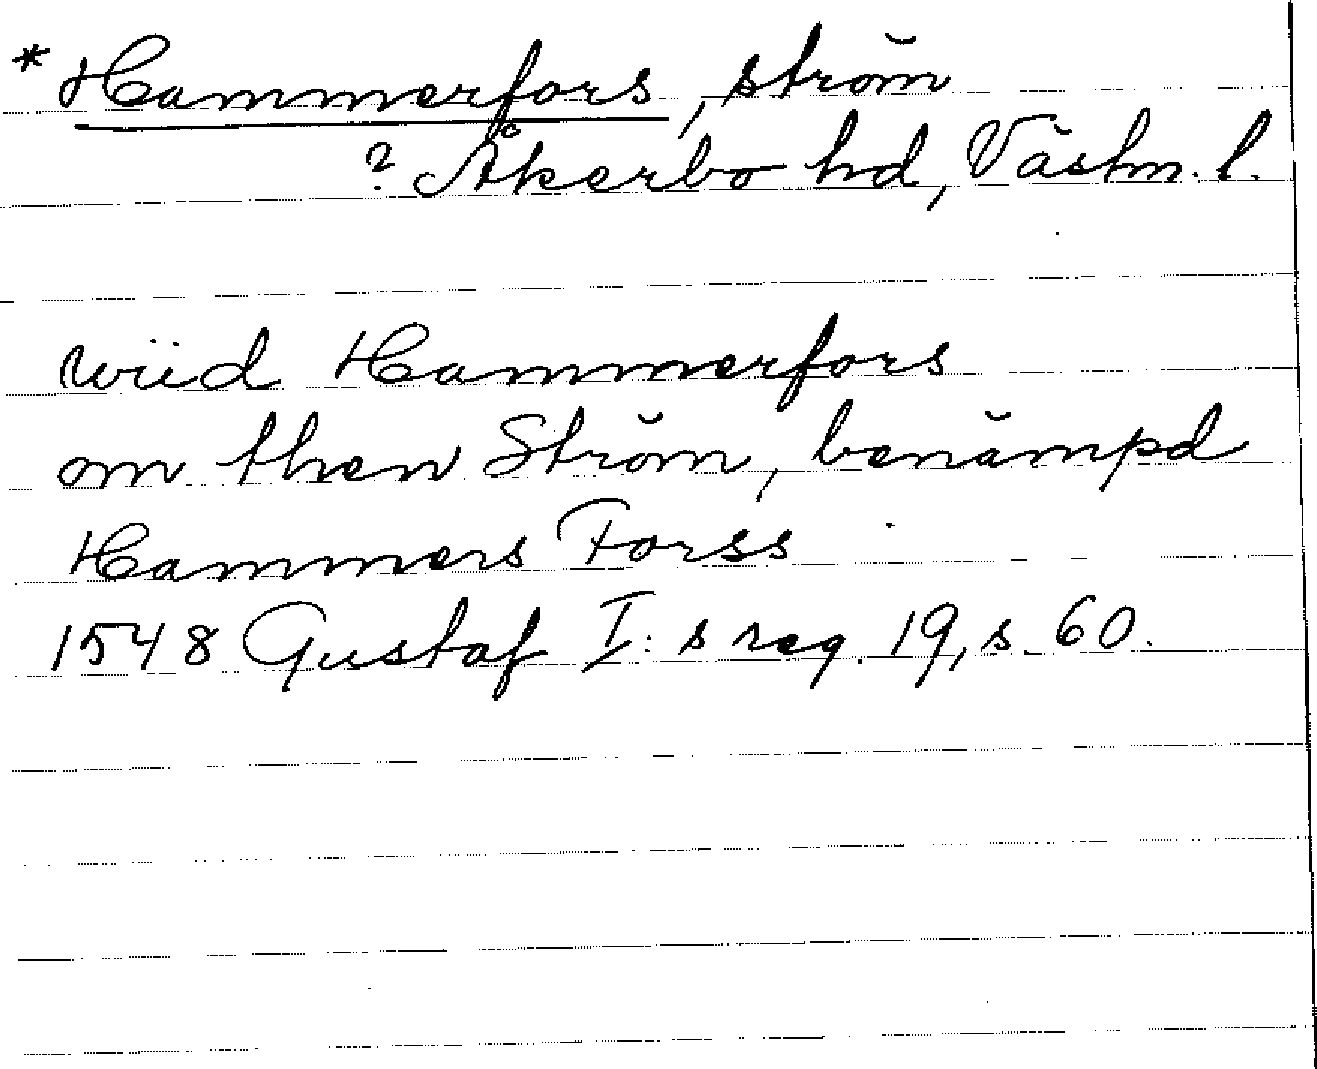 * Hammerfors, ström
? Åkerbo hd, Västm. l.
wiid Hammerfors
om then Ström, benämpd
Hammers Forss
1548 Gustaf I: s reg. 19, s. 60.